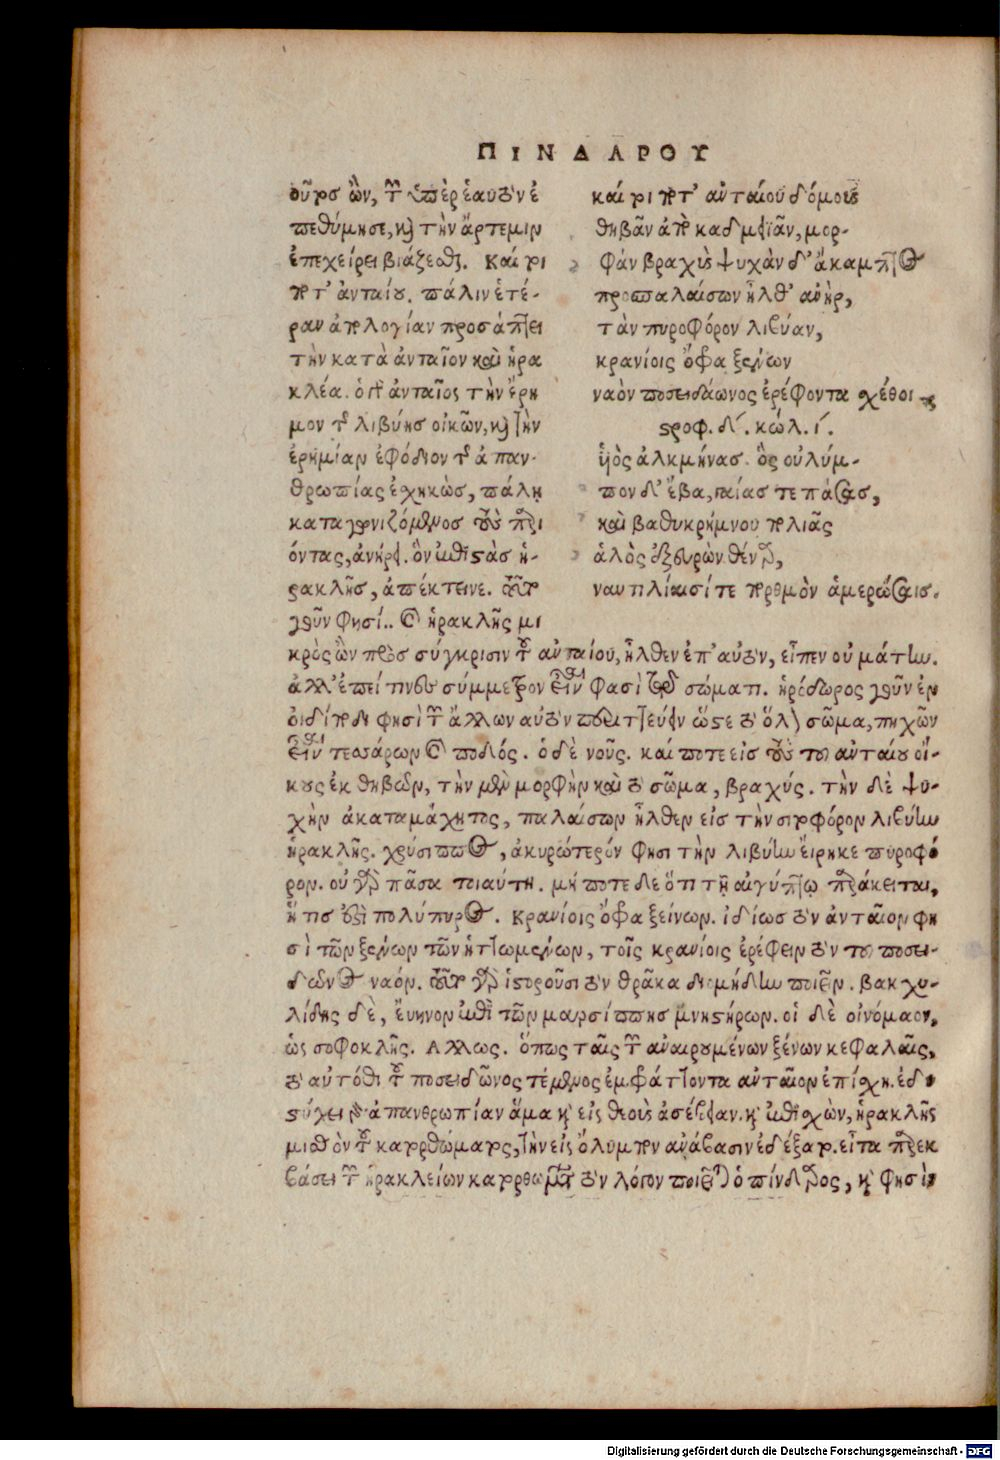 ΠΙΝΔΑΡΟΥ
οῦτος ὢν, τῶν ὑπὲρ ἑαυτὸν ἐ
πεθύμησε, καὶ τὴν ἄρτεμιν
ἐπεχείρει βιάζεσθαι. Καί τοί
ποτ' ἀνταίου. πάλιν ἑτέ-
ραν ἀπολογίαν προσάπτει
τὴν κατὰ ἀνταῖον καὶ ἡρα
κλέα. ὁ γὰρ ἀνταῖος τὴν ἔρη
μον τῆς λιβύης οἰκῶν, καὶ τὴν
ἐρημίαν ἐφόδιον τῆς ἀπαν-
θρωπίας ἐσχηκὼς, πάλῃ
καταγωνιζόμενος τοὺς παρι
όντας, ἀνῄρει. ὃν ἐπιστὰς ἡ-
ρακλῆς, ἀπέκτεινε. τοῦτο
γοῦν φησί.. ὁ ἡρακλῆς μι
καί τοί ποτ' ἀνταίου δόμους
θηβᾶν ἀπὸ καδμεϊᾶν, μορ-
φὰν βραχὺς ψυχὰν δ' ἄκαμπτος
προσπαλαίσων ἦλθ' ἀνὴρ,
τὰν πυροφόρον λιβύαν,
κρανίοις ὄφρα ξένων
ναὸν ποσειδάωνος ἐρέφοντα σχέθοι
στροφ. δ΄. κώλ. ι΄.
ὑιὸς ἀλκμήνας. ὃς οὐλύμ-
πον δ' ἔβα, γαίας τε πάσας,
καὶ βαθυκρήμνου πολιᾶς
ἁλὸς ἐξευρὼν θέναρ,
ναυτιλίαισί τε πορθμὸν ἁμερώσαις.
κρὸς ὢν πρὸς σύγκρισιν τοῦ ἀνταίου, ἦλθεν ἐπ' αὐτὸν, εἶπεν οὐ μάτην.
ἀλλ' ἐπεί τινες σύμμετρον εἶναι φασὶ τῷ σώματι. ἡρόδωρος γοῦν ἐν
οἰδίποδι φησὶ τῶν ἄλλων αὐτὸν περιττεύειν ὥστε τὸ ὅλον σῶμα, πηχῶν
εἶναι τεσσάρων καὶ ποδός. ὁ δὲ νοῦς. καί ποτε εἰς τοὺς τοῦ ἀνταίου οἴ-
κους ἐκ θηβῶν, τὴν μὲν μορφὴν καὶ τὸ σῶμα, βραχύς. τὴν δὲ ψυ-
χὴν ἀκαταμάχητος, παλαίσων ἦλθεν εἰς τὴν σιτοφόρον λιβύην
ἡρακλῆς. χρύσιππος, ἀκυρώτερόν φησι τὴν λιβύην εἴρηκε πυροφό
ρον. οὐ γὰρ πᾶσα τοιαύτη. μή ποτε δὲ ὅτι τῇ αἰγύπτῳ παράκειται,
ἥτις ἐστὶ πολύπυρος. Κρανίοις ὄφρα ξείνων. ἰδίως τὸν ἀνταῖον φη
σὶ τῶν ξένων τῶν ἡττωμένων, τοῖς κρανίοις ἐρέφειν τὸν τοῦ ποσει-
δῶνος ναόν. τοῦτο γὰρ ἱστοροῦσι τὸν θρᾷκα διομήδην ποιεῖν. βακχυ-
λίδης δὲ, ἔυηνον ἐπὶ τῶν μαρσίππης μνηστήρων. οἱ δὲ οἰνόμαον,
ὡς σοφοκλῆς. Αλλως. ὅπως ταῖς τῶν ἀναιρουμένων ξένων κεφαλαῖς,
τὸ αὐτόθι τοῦ ποσειδῶνος τέμενος ἐμφράττοντα ἀνταῖον ἐπίσχῃ. ἐδυ
στύχει γὰρ ἀπανθρωπίαν ἅμα καὶ εἰς θεοὺς ἀσέβειαν. καὶ ἐπισχὼν, ἡρακλῆς
μισθὸν τοῦ κατορθώματος, τὴν εἰς ὄλυμπον ἀνάβασιν ἐδέξατο. εἶτα παρεκ
βάσει τῶν ἡρακλείων κατορθωμάτων τὸν λόγον ποιεῖται ὁ πίνδαρος, καὶ φησὶν
Digitalisierung gefördert durch die Deutsche Forschungsgemeinschaft - DFG